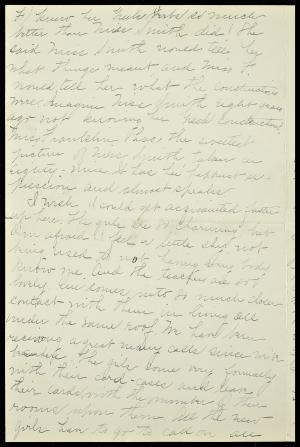 F. knew her Greek verbs so much
better than Miss Smith did! She
said Miss Smith would tell her
what things meant and Miss F.
would tell her what the constructions
were. Imagine Miss Smith eight years
ago not knowing her Greek constructions!
Miss Franklin has the sweetest
picture of Miss Smith taken in
eighty-nine. It has her happiest ex-
pression and almost speaks.
I wish I could get acquainted faster
up here. The girls are so charming but
I'm afraid I feel a little shy not
being used to not having any body
know me. And the teachers are so
lovely, one comes into so much closer
contact with them in living all
under the same roof. We have been
receiving a great many calls since we
The girls come very formally
with their card-cases and leave
their cards with the number of their
rooms upon them. All the new
girls have to go to call on all